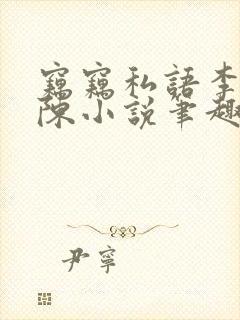 竊竊私語李
陳小說筆趣
尹寧